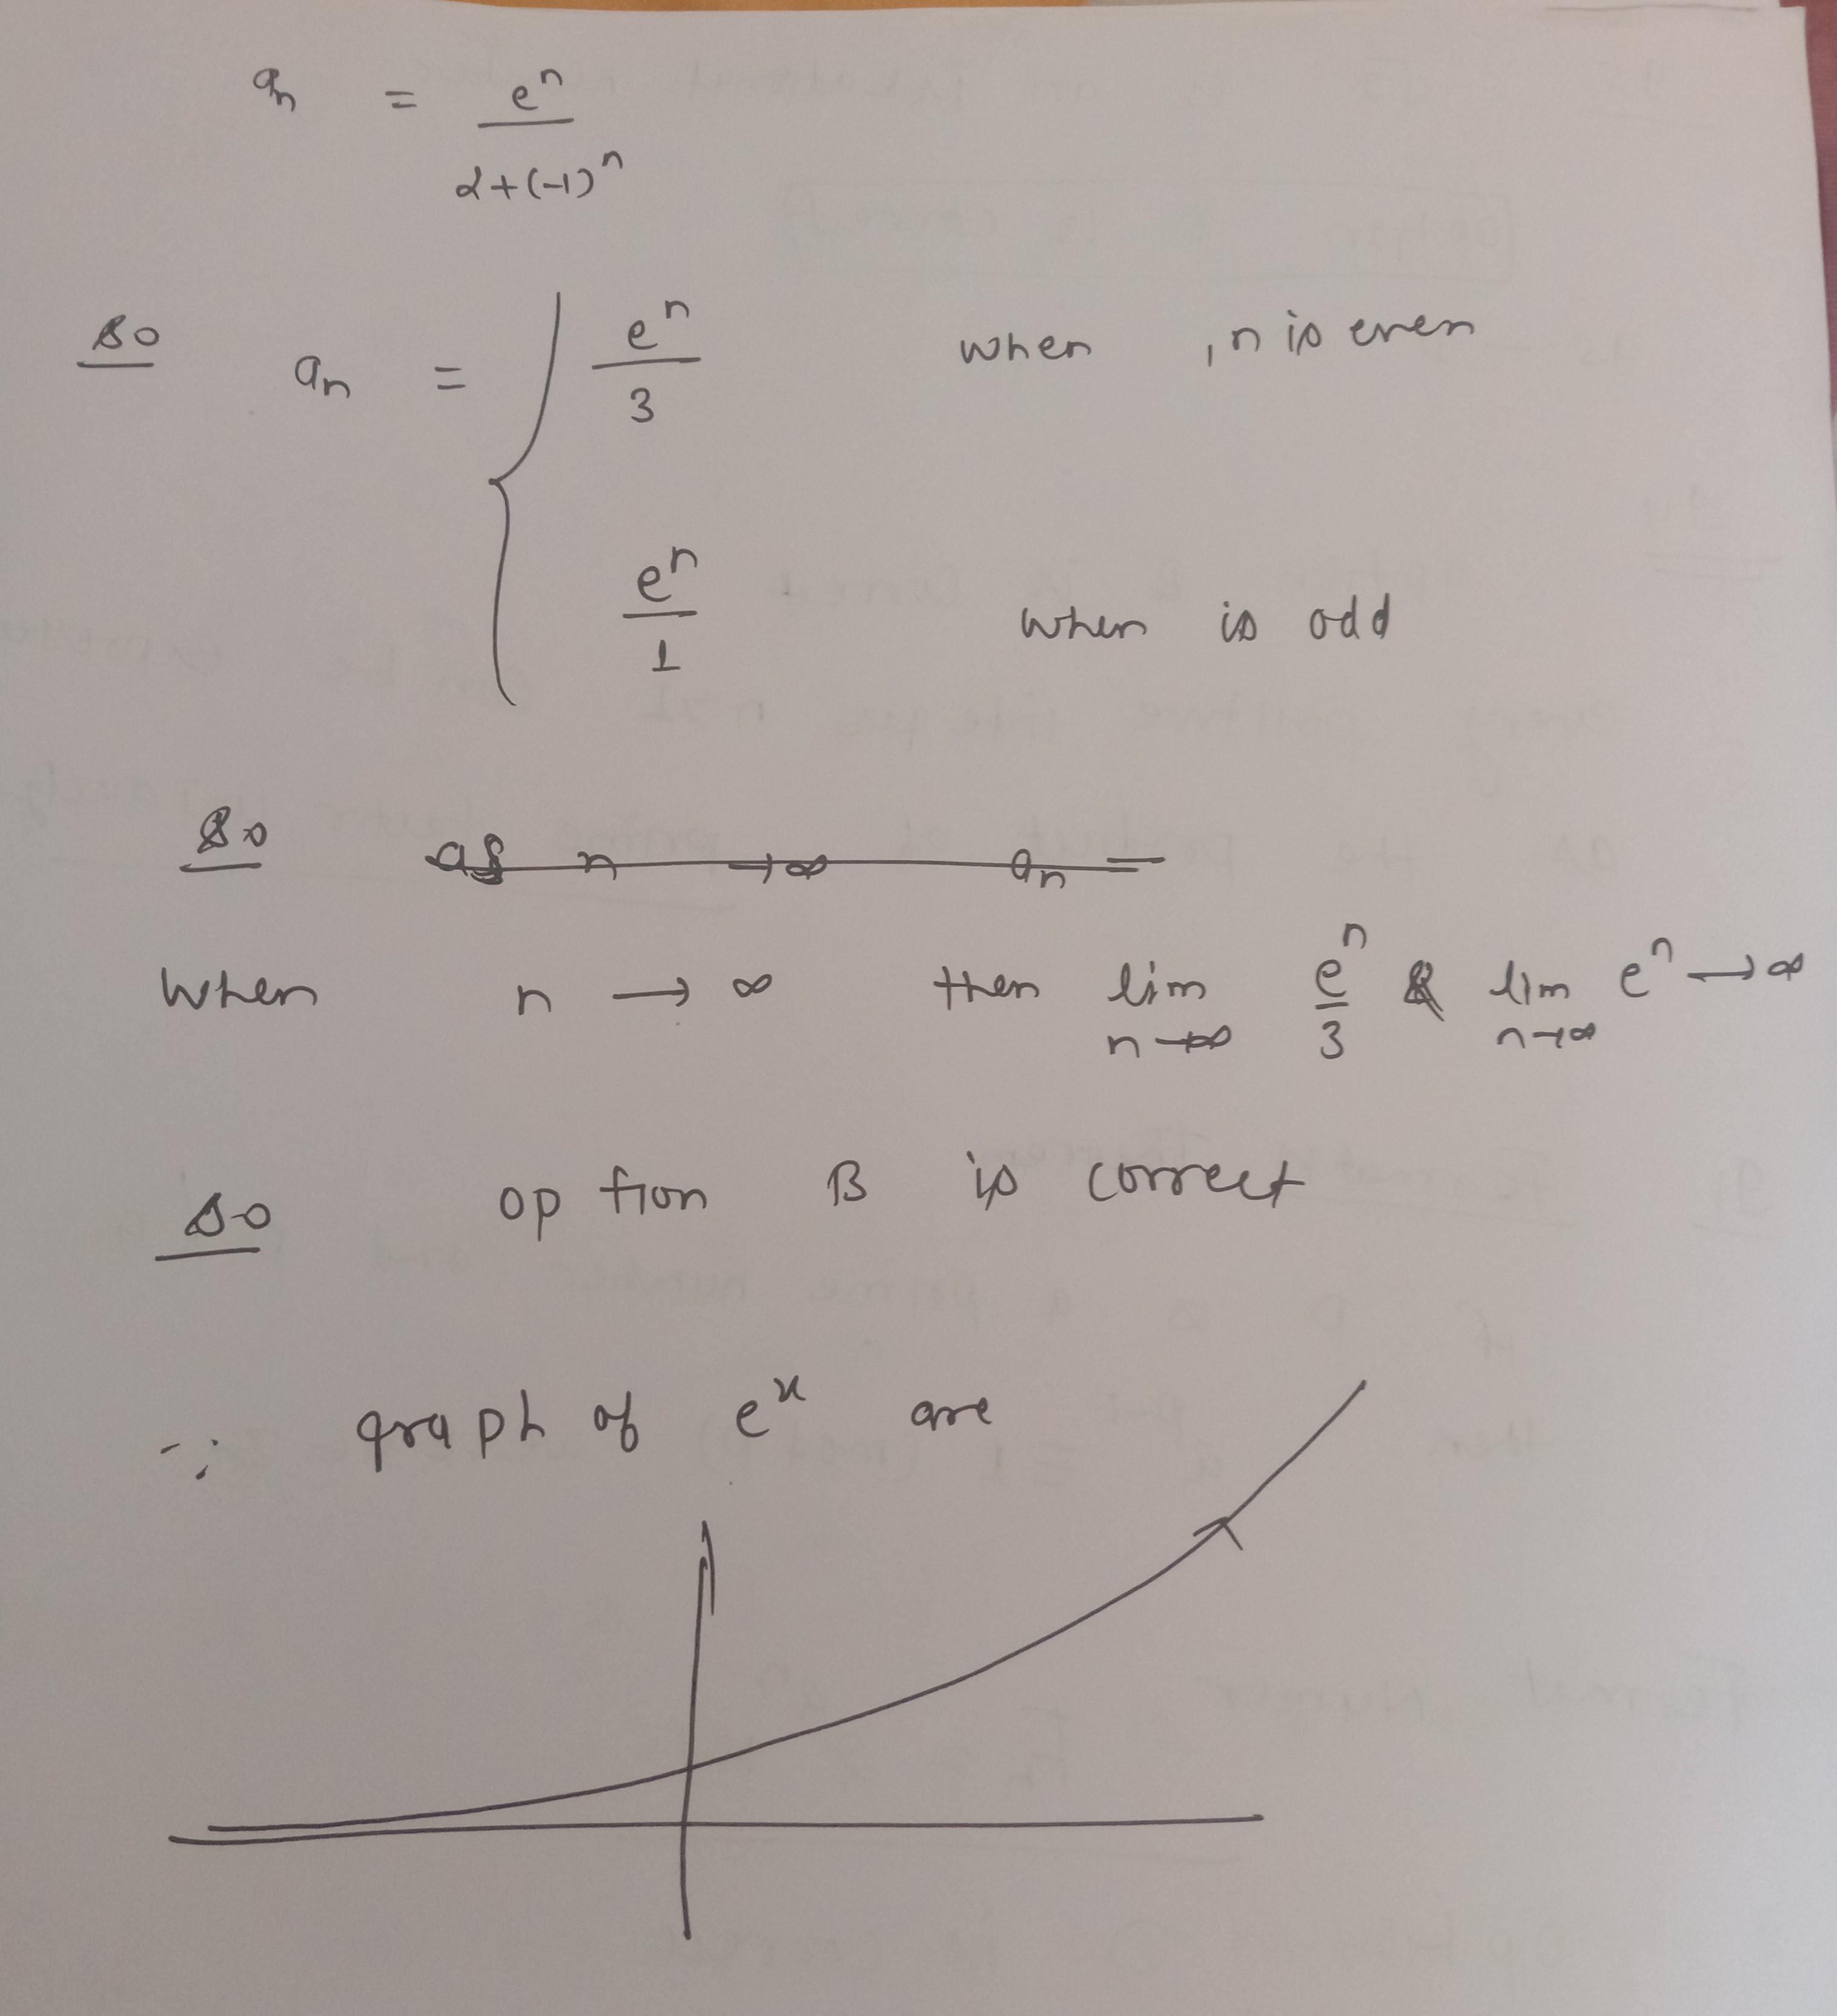 aₙ = eⁿ / 2+(-1)ⁿ
so aₙ = { eⁿ/3 when , n is even
eⁿ/1 when is odd
So as n → ∞ aₙ =
When n → ∞ then lim n→∞ eⁿ/3 & lim n→∞ eⁿ → ∞
so option B is correct
∵ graph of eˣ are